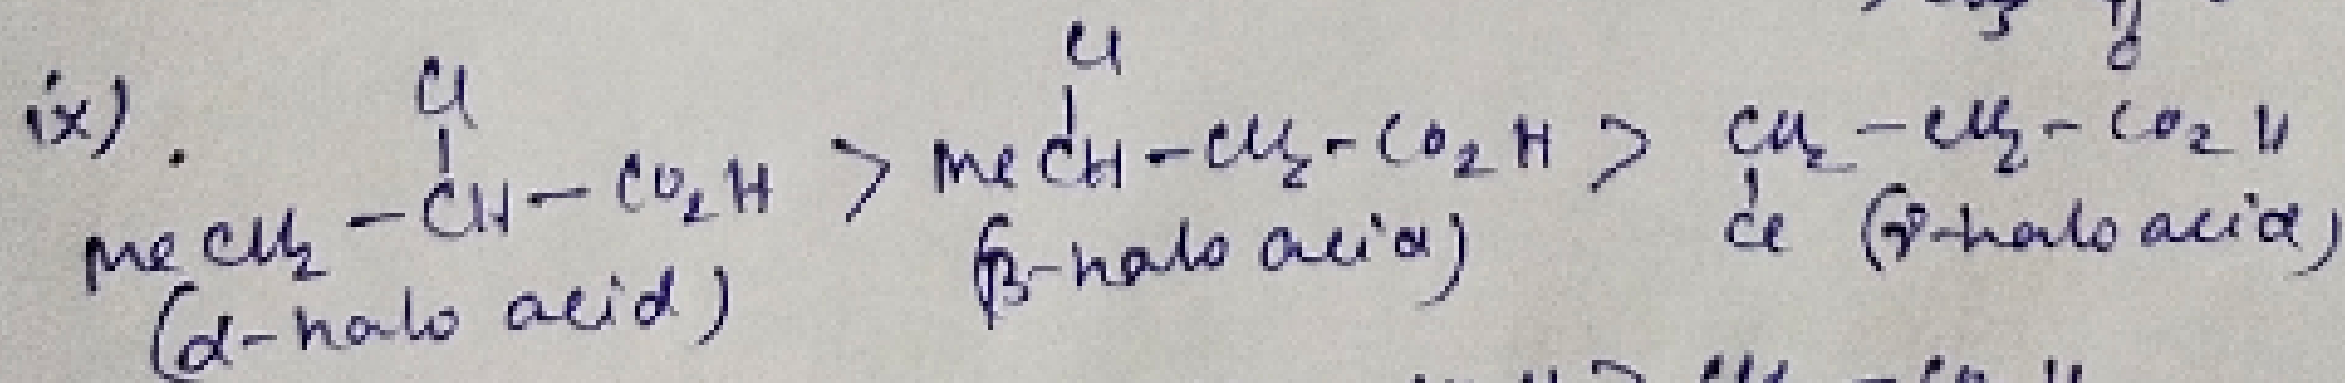 Cl
Cl
ix). MeCH₂-CH-CO₂H > MeCH-CH₂-CO₂H > CH₂-CH₂-CO₂H
Cl
(α-halo acid) (β-halo acid) (γ-halo acid)